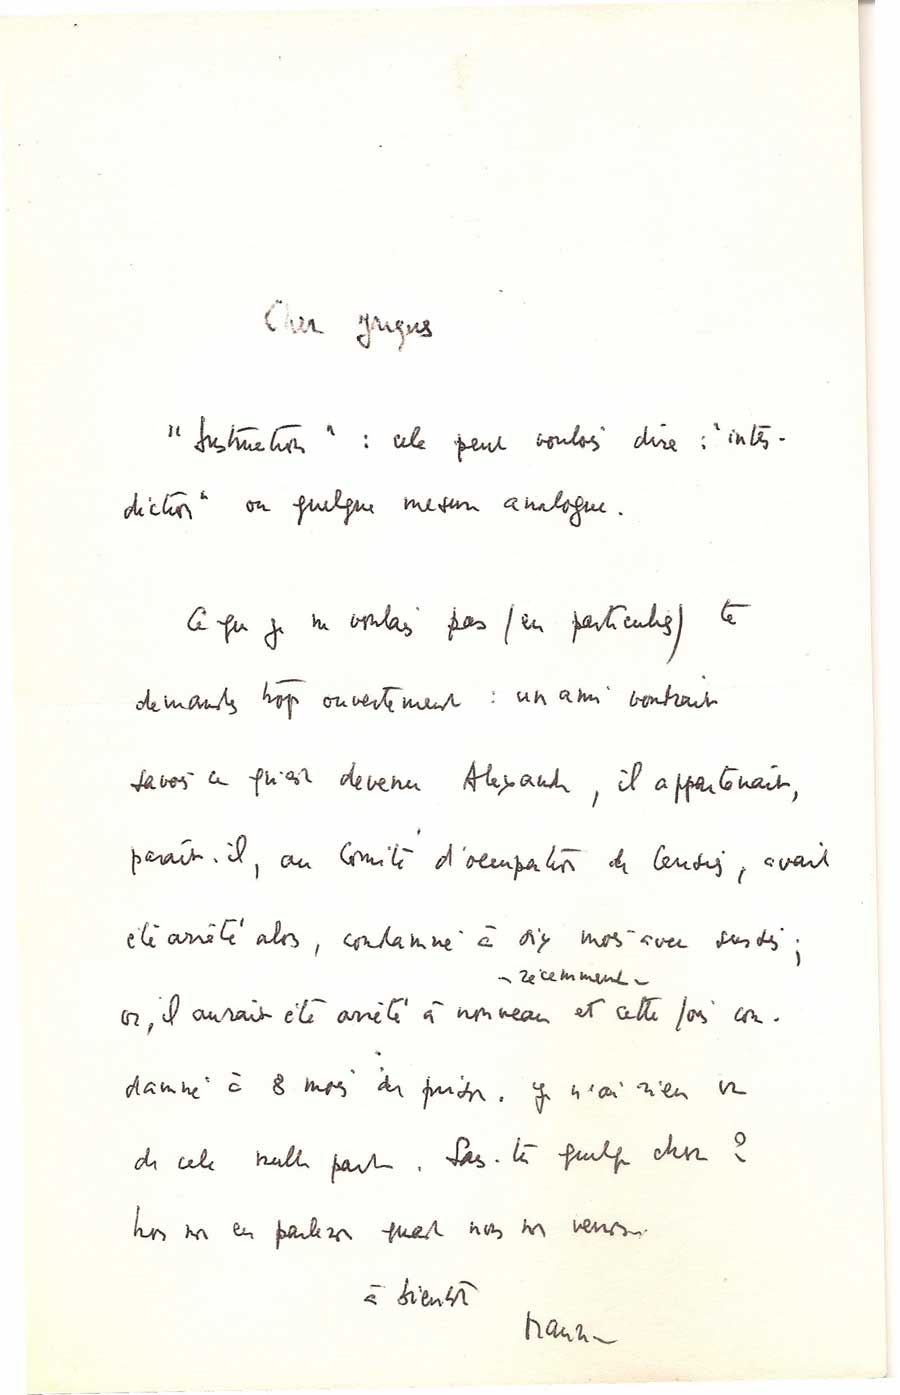 Cher Jacques
"Instruction" : cela peut vouloir dire : "inter-
diction" ou quelque mesure analogue.
Ce que je ne voulais pas (en particulier) te
demander trop ouvertement : un ami voudrait
savoir ce qu'est devenu Alexandre, il appartenait,
paraît-il, au Comité d'occupation de Censier, avait
été arrêté alors, condamné à dix mois avec sursis ;
récemment
or, il aurait été arrêté à nouveau et cette fois con-
damné à 8 mois de prison. Je n'ai rien vu
de cela nulle part. Sais-tu quelque chose ?
Nous en parlerons quand nous nous verrons.
à bientôt